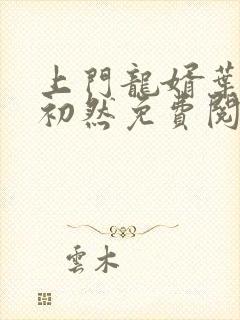 上門龍婿葉
初然免費閱
雲木